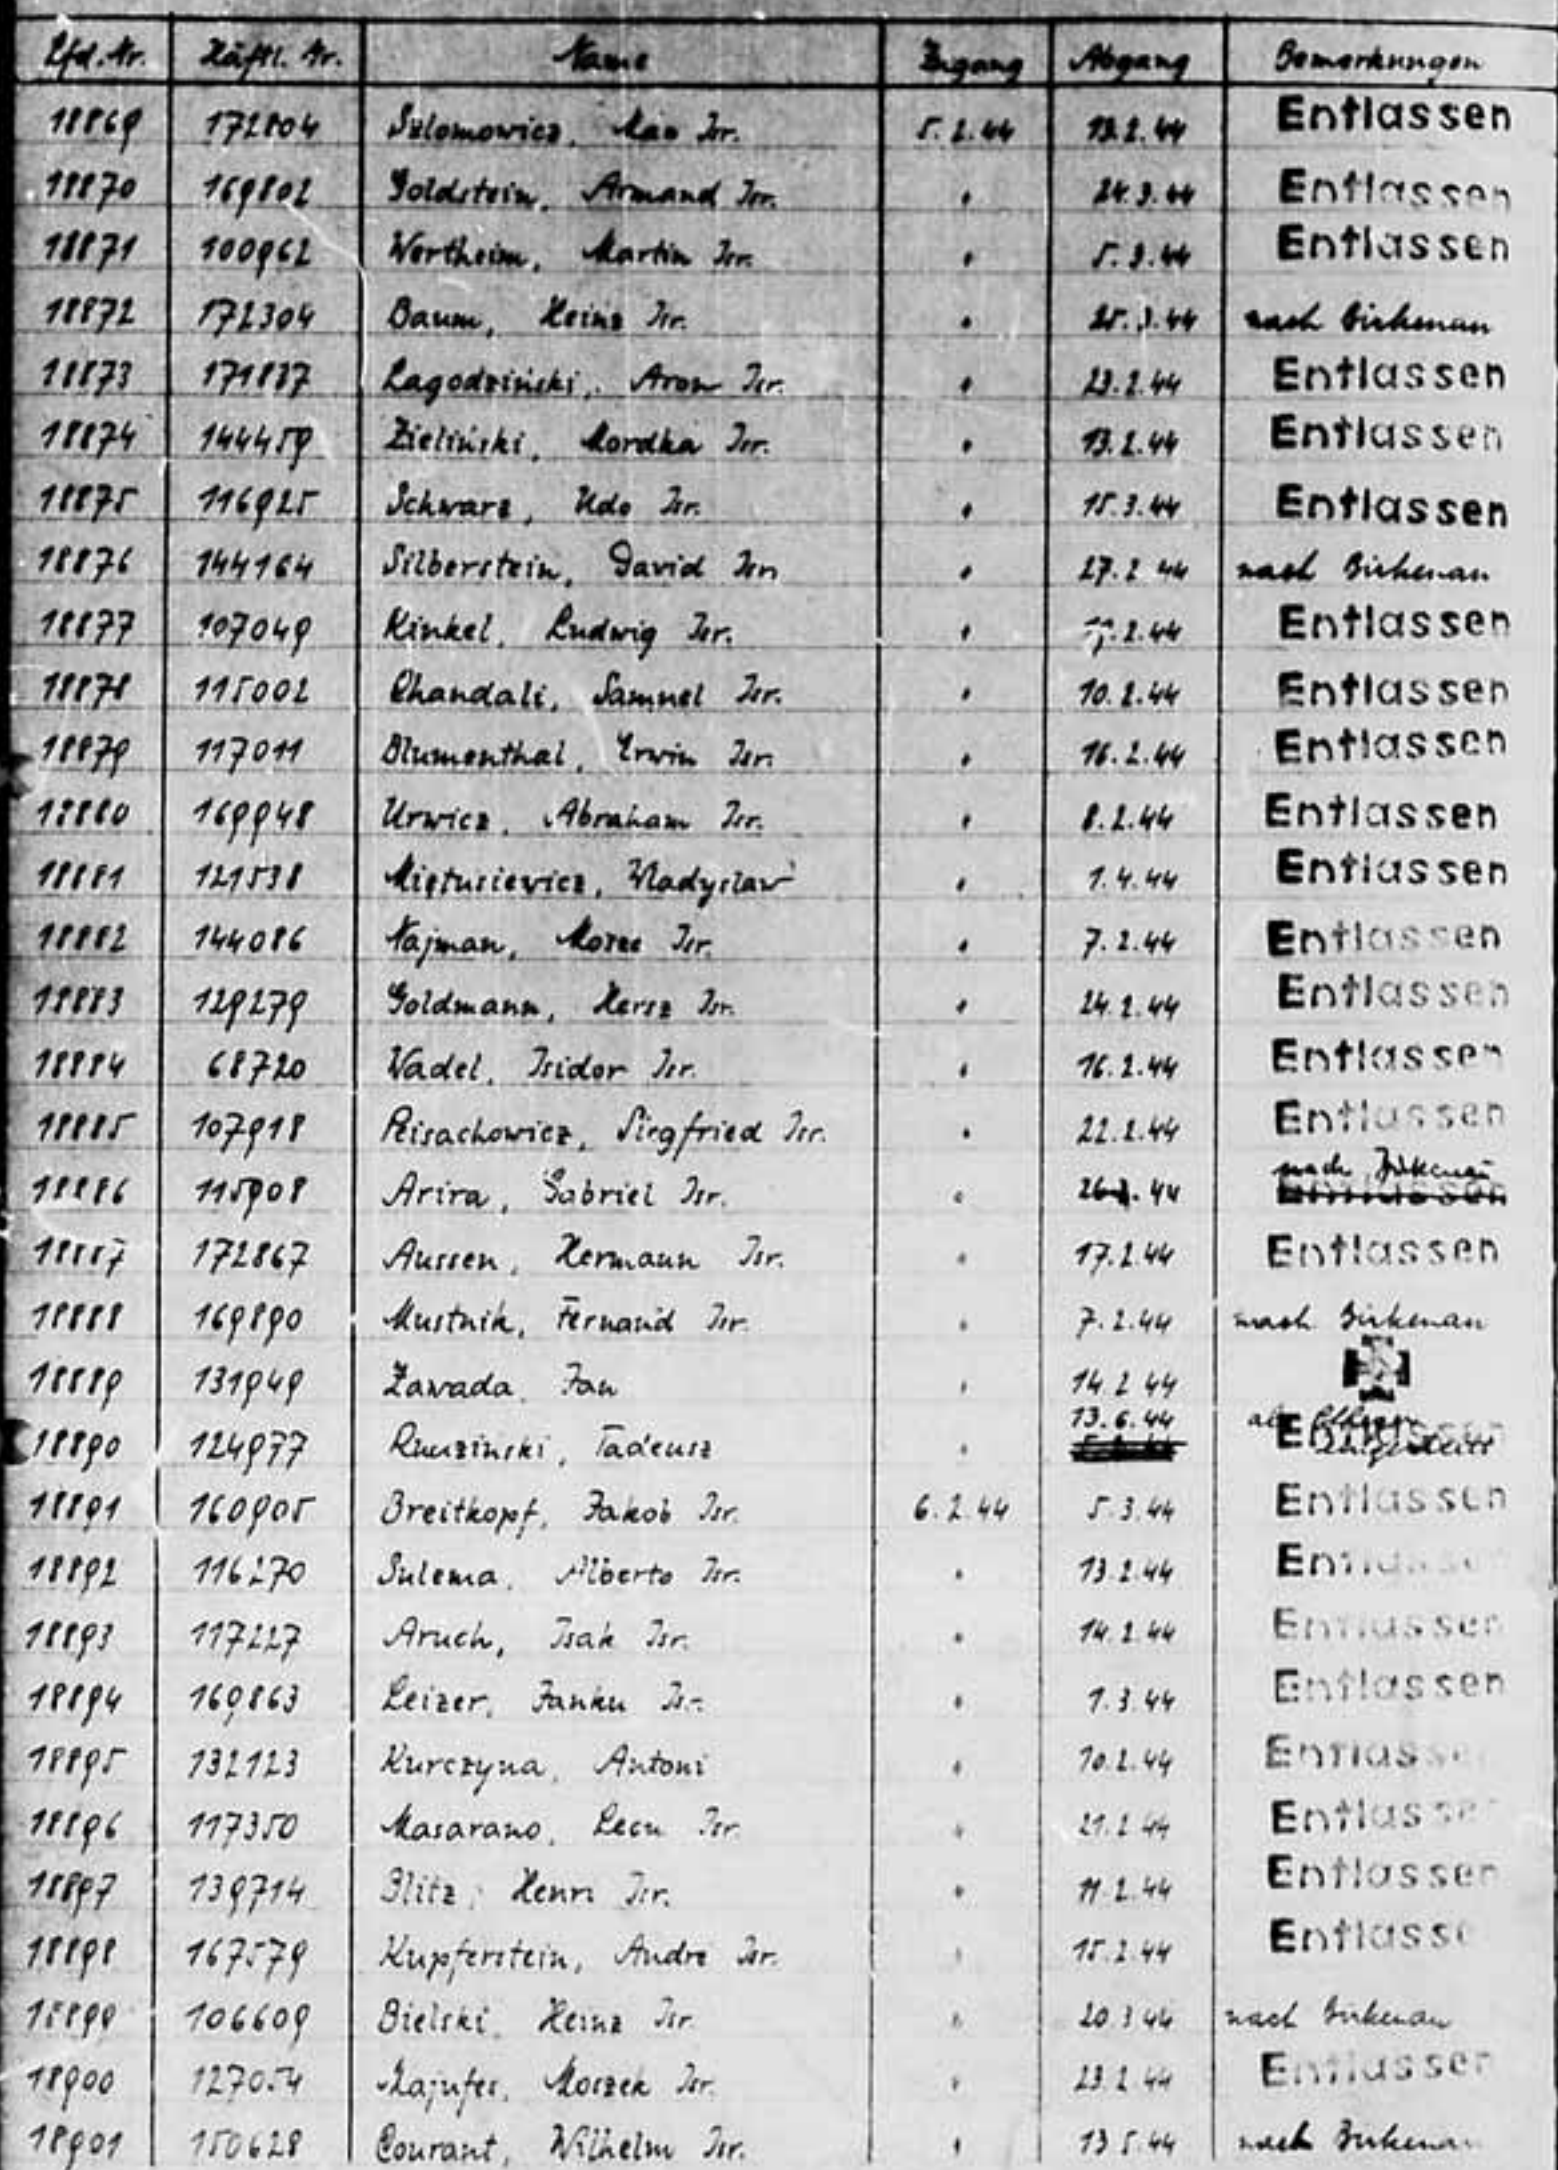 Lfd. Nr. Häftl. Nr. Name Zugang Abgang Bemerkungen
18869 172804 Szlomowicz, Max Isr. 5.2.44 13.2.44 Entlassen
18870 169802 Goldstein, Armand Isr. " 24.3.44 Entlassen
18871 100962 Wertheim, Martin Isr. " 5.3.44 Entlassen
18872 172304 Baum, Heinz Isr. " 25.3.44 nach Birkenau
18873 171887 Lagodziński, Aron Isr. " 23.2.44 Entlassen
18874 144459 Zieliński, Mordka Isr. " 13.2.44 Entlassen
18875 116925 Schwarz, Udo Isr. " 15.3.44 Entlassen
18876 144164 Silberstein, David Isr. " 27.2.44 nach Birkenau
18877 107049 Kinkel, Ludwig Isr. " .2.44 Entlassen
18878 115002 Chandali, Samuel Isr. " 10.2.44 Entlassen
18879 117011 Blumenthal, Erwin Isr. " 16.2.44 Entlassen
18880 169948 Urwicz, Abraham Isr. " 8.2.44 Entlassen
18881 121538 Miętusiewicz, Wladyslaw " 1.4.44 Entlassen
18882 144086 Najman, Isr. " 7.2.44 Entlassen
18883 129279 Goldmann, Hersz Isr. " 24.2.44 Entlassen
18884 68720 Wadel, Isidor Isr. " 16.2.44 Entlassen
18885 107918 Reisachowicz, Siegfried Isr. " 22.2.44 Entlassen
nach Birkenau
18886 115908 Arira, Gabriel Isr. " 44 Entlassen
18887 172867 Aussen, Hermann Isr. " 17.2.44 Entlassen
18888 169890 Mustnik, Fernand Isr. " 7.2.44 nach Birkenau
18889 131949 Zawada, Jan " 14.2.44
13.6.44 als
18890 124977 Tadeusz "
18891 160905 Breitkopf, Jakob Isr. 6.2.44 5.3.44 Entlassen
18892 116270 Sulema, Alberto Isr. " 13.2.44 Entlassen
18893 117227 Aruch, Isak Isr. " 14.2.44 Entlassen
18894 169863 Leizer, Janku Isr. " 1.3.44 Entlassen
18895 132123 Kurczyna, Antoni " 10.2.44 Entlassen
18896 117350 Masarano, Leon Isr. " 21.2.44 Entlassen
18897 139714 Blitz, Henri Isr. " 11.2.44 Entlassen
18898 167579 Kupferstein, Andre Isr. " 15.2.44 Entlassen
18899 106609 Bielski, Heinz Isr. " 20.3.44 nach Birkenau
18900 Majufes, Moszek Isr. " 23.2.44 Entlassen
18901 150628 Courant, Wilhelm Isr. " 13.5.44 nach Birkenau